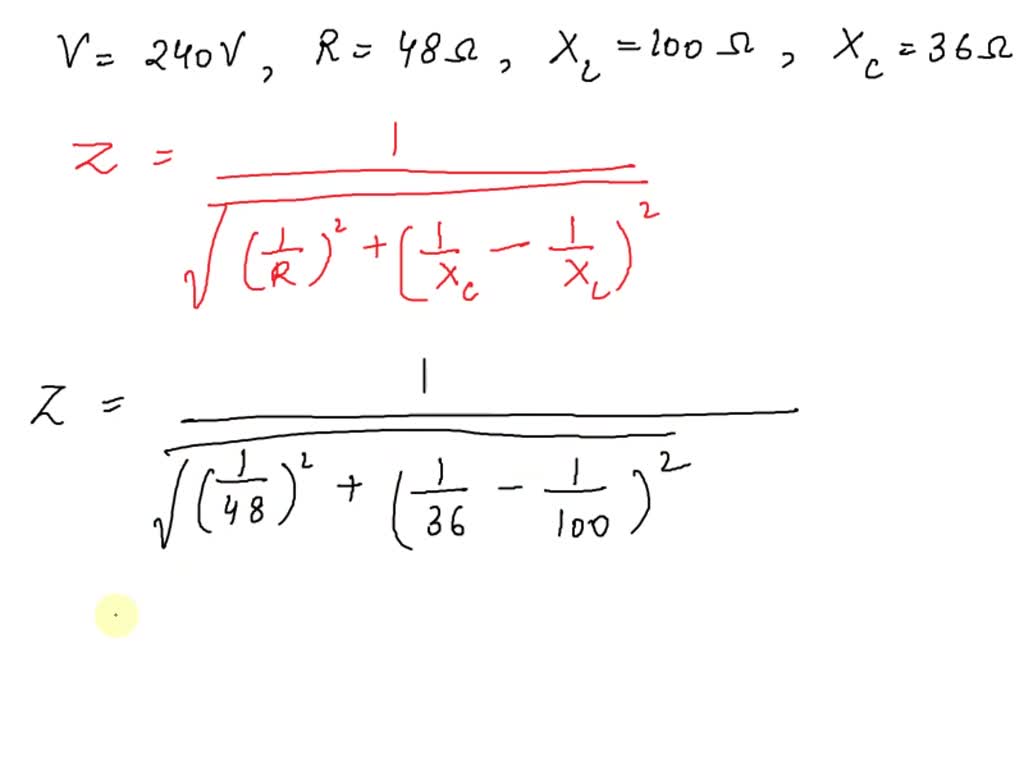 V = 240V, R = 48Ω, X_L = 100 Ω, X_C = 36Ω
Z = 1 / √((1/R)² + (1/X_C − 1/X_L)²)
Z = 1 / √((1/48)² + (1/36 − 1/100)²)